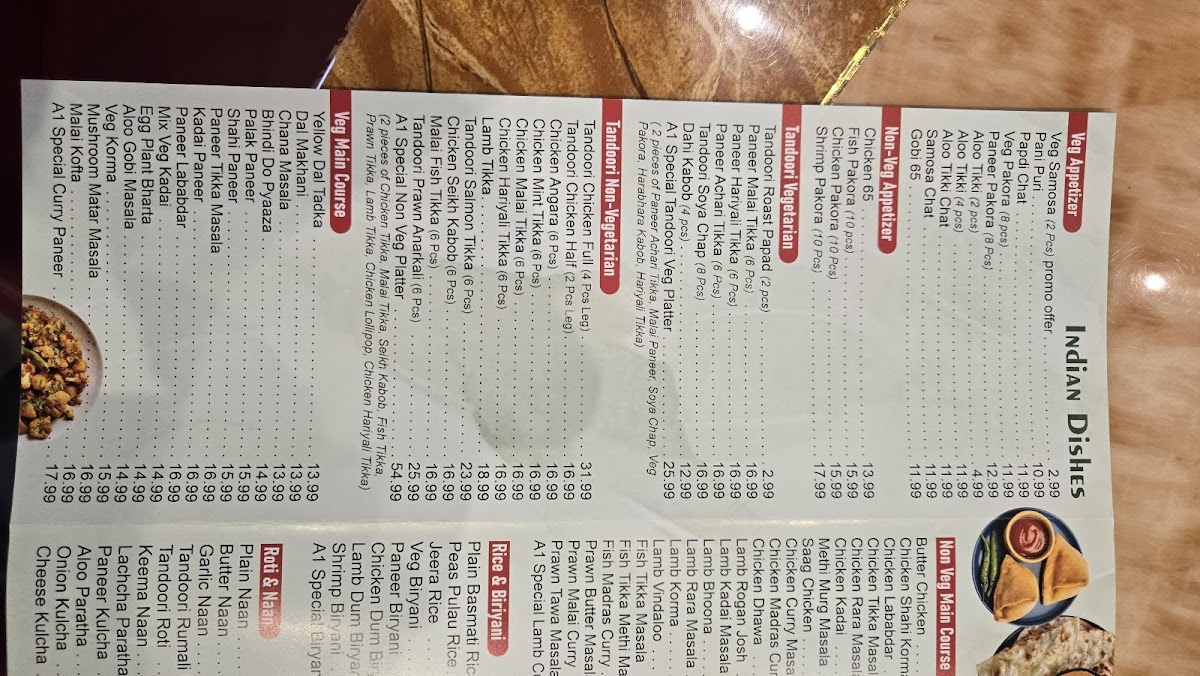 INDIAN DISHES
Veg Appetizer
Veg Samosa (2 Pcs) promo offer 2.99
Pani Puri 10.99
Papdi Chat 11.99
Veg Pakora (8 pcs) 11.99
Paneer Pakora (8 Pcs) 12.99
Aloo Tikki (2 pcs) 4.99
Aloo Tikki (4 pcs) 11.99
Aloo Tikki Chat 11.99
Samosa Chat 11.99
Gobi 65 11.99
Non-Veg Appetizer
Chicken 65 13.99
Fish Pakora (10 pcs) 15.99
Chicken Pakora (10 Pcs) 15.99
Shrimp Pakora (10 Pcs) 17.99
Tandoori Vegetarian
Tandoori Roast Papad (2 pcs) 2.99
Paneer Malai Tikka (6 Pcs) 16.99
Paneer Hariyali Tikka (6 Pcs) 16.99
Paneer Achari Tikka (6 Pcs) 16.99
Tandoori Soya Chap (8 Pcs) 16.99
Dahi Kabob (4 pcs) 12.99
A1 Special Tandoori Veg Platter 25.99
(2 pieces of Paneer Achari Tikka, Malai Paneer, Soya Chap, Veg
Pakora, Harabhara Kabob, Hariyali Tikka)
Tandoori Non-Vegetarian
Tandoori Chicken Full (4 Pcs Leg) 31.99
Tandoori Chicken Half (2 Pcs Leg) 16.99
Chicken Angara (6 Pcs) 16.99
Chicken Mint Tikka (6 Pcs) 16.99
Chicken Malai Tikka (6 Pcs) 16.99
Chicken Hariyali Tikka (6 Pcs) 16.99
Lamb Tikka 18.99
Tandoori Salmon Tikka (6 Pcs) 23.99
Chicken Seikh Kabob (6 Pcs) 16.99
Malai Fish Tikka (6 Pcs) 16.99
Tandoori Prawn Anarkali (6 Pcs) 25.99
A1 Special Non Veg Platter 54.99
(2 pieces of Chicken Tikka, Malai Tikka, Seikh Kabob, Fish Tikka,
Prawn Tikka, Lamb Tikka, Chicken Lollipop, Chicken Hariyali Tikka)
Veg Main Course
Yellow Dal Tadka 13.99
Dal Makhani 13.99
Chana Masala 13.99
Bhindi Do Pyaaza 14.99
Palak Paneer 15.99
Shahi Paneer 15.99
Paneer Tikka Masala 16.99
Kadai Paneer 16.99
Paneer Lababdar 16.99
Mix Veg Kadai 14.99
Egg Plant Bharta 14.99
Aloo Gobi Masala 14.99
Veg Korma 15.99
Mushroom Matar Masala 16.99
Malai Kofta 16.99
A1 Special Curry Paneer 17.99
Non Veg Main Course
Butter Chicken
Chicken Shahi Korma
Chicken Lababdar
Chicken Tikka Masal
Chicken Rara Masala
Chicken Kadai
Methi Murg Masala
Saag Chicken
Chicken Curry Masa
Chicken Madras Cur
Chicken Dhawa
Lamb Rogan Josh
Lamb Kadai Masala
Lamb Bhoona
Lamb Rara Masala
Lamb Korma
Lamb Vindaloo
Fish Tikka Masala
Fish Tikka Methi Ma
Fish Madras Curry
Prawn Butter Masal
Prawn Malai Curry
Prawn Tawa Masala
A1 Special Lamb Cu
Rice & Biriyani
Plain Basmati Ric
Peas Pulau Rice
Jeera Rice
Veg Biryani
Paneer Biryani
Chicken Dum Bir
Lamb Dum Biryan
Shrimp Biryani
A1 Special Biryan
Roti & Naan
Plain Naan
Butter Naan
Garlic Naan
Tandoori Rumali
Tandoori Roti
Keema Naan
Lachcha Paratha
Paneer Kulcha
Aloo Paratha
Onion Kulcha
Cheese Kulcha